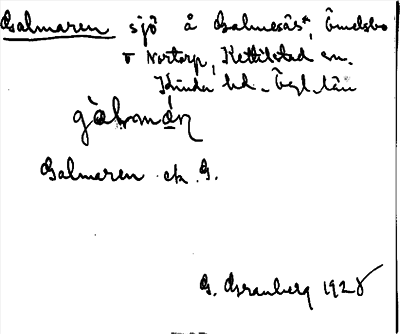 Galmaren sjö å Galmesås*, Ömdsbo
o Nortorp, Kettilstad sn.
Kinda hd. Ögl. län
gàlmán
Galmaren ek G.
G. Granberg 1928